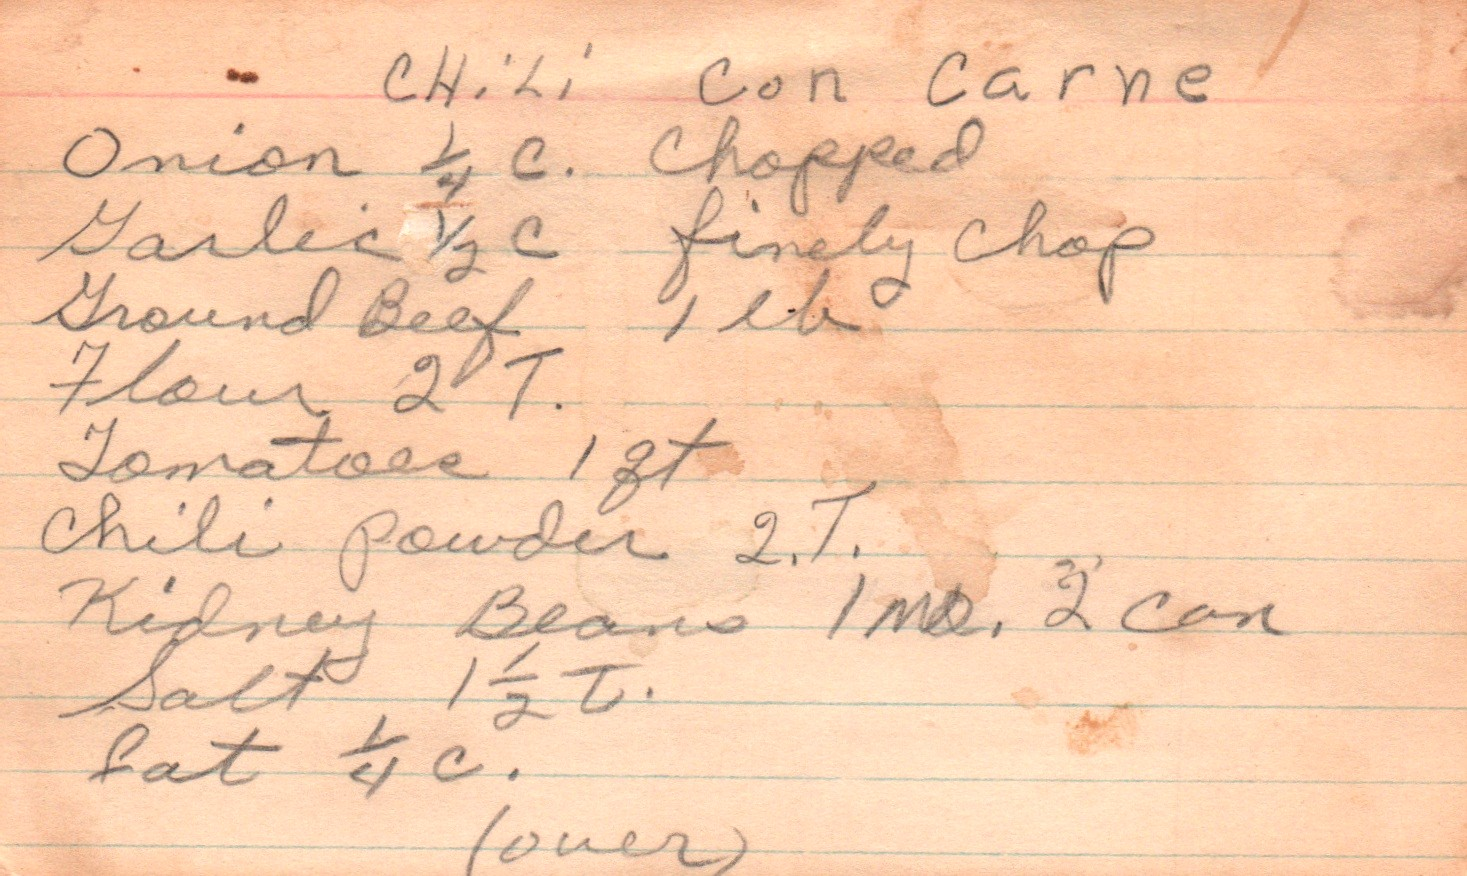 CHiLi Con Carne
Onion 1/4 C. Chopped
Garlic 1/2 C finely Chop
Ground Beef 1 lb
Flour 2 T.
Tomatoes 1 qt
Chili Powder 2.T.
Kidney Beans 1 No. 2 can
Salt 1 1/2 t.
fat 1/4 c.
(over)